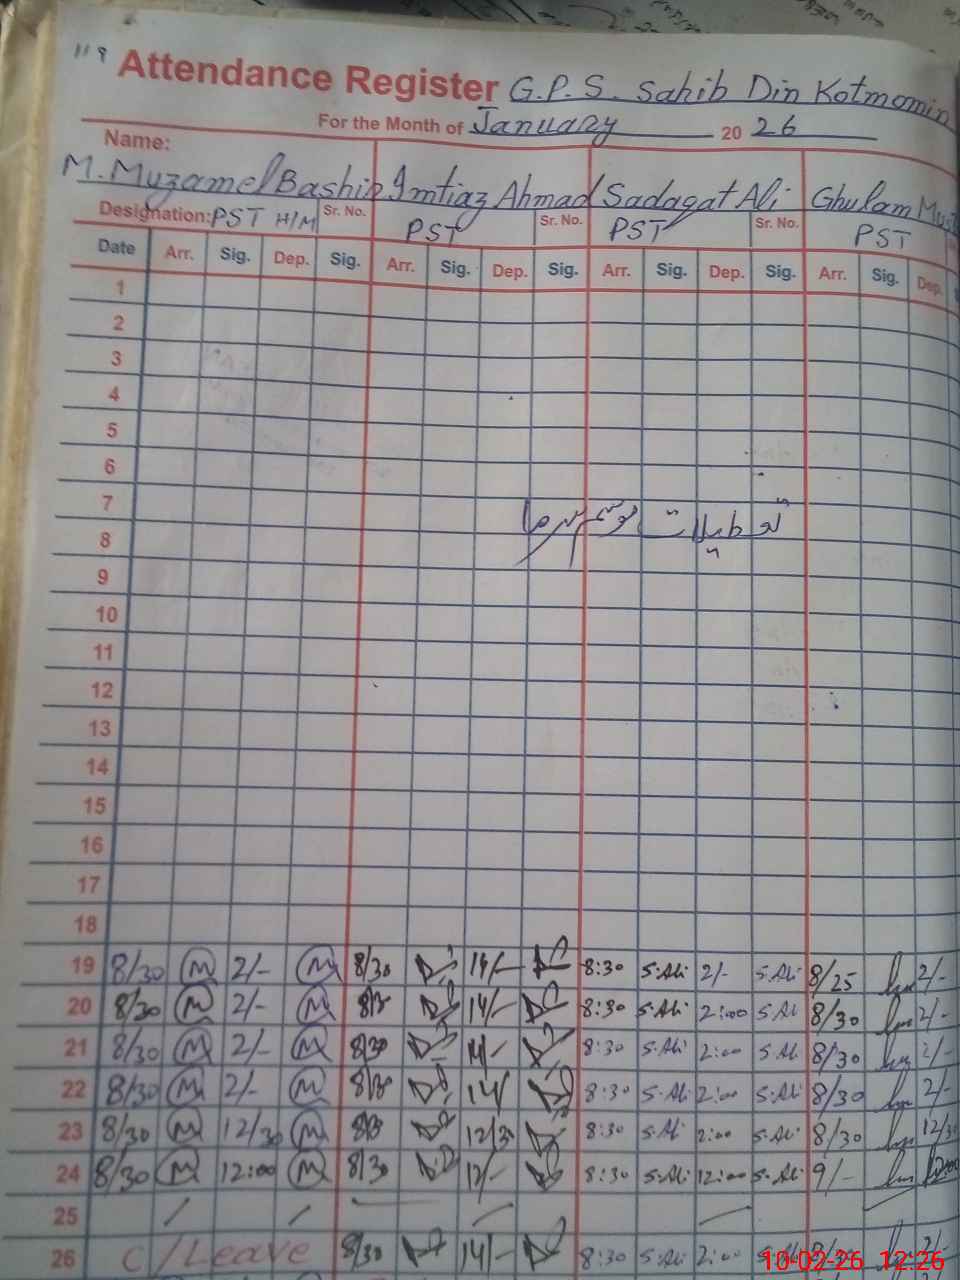 119 Attendance Register G.P.S. Sahib Din Kotmomin
For the Month of January 2026
Name:
M. Muzamel Bashir Imtiaz Ahmad Sadaqat Ali Ghulam
Designation: PST H/M Sr. No. PST Sr. No. PST Sr. No. PST
Date Arr. Sig. Dep. Sig. Arr. Sig. Dep. Sig. Arr. Sig. Dep. Sig. Arr. Sig. Dep.
1
2
3
4
5
6
7
تعطیلات موسم سرما
8
9
10
11
12
13
14
15
16
17
18
19 8/30 M 2/- M 8/30 14/- 8:30 S.Ali 2/- S.Ali 8/25 2/-
20 8/30 M 2/- M 8/30 14/- 8:30 S.Ali 2:00 S.Ali 8/30 2/-
21 8/30 M 2/- M 8/30 14/- 8:30 S.Ali 2:00 S.Ali 8/30 2/-
22 8/30 M 2/- M 8/30 14/ 8:30 S.Ali 2:00 S.Ali 8/30 2/-
23 8/30 M 12/30 M 8/30 12/30 8:30 S.Ali 2:00 S.Ali 8/30 12/30
24 8/30 M 12:00 M 8/30 12/- 8:30 S.Ali 12:00 S.Ali 9/- 12:00
25
26 C/Leave 8/30 14/- 8:30 S.Ali 2:00 S.Ali 2/-
10-02-26 12:26